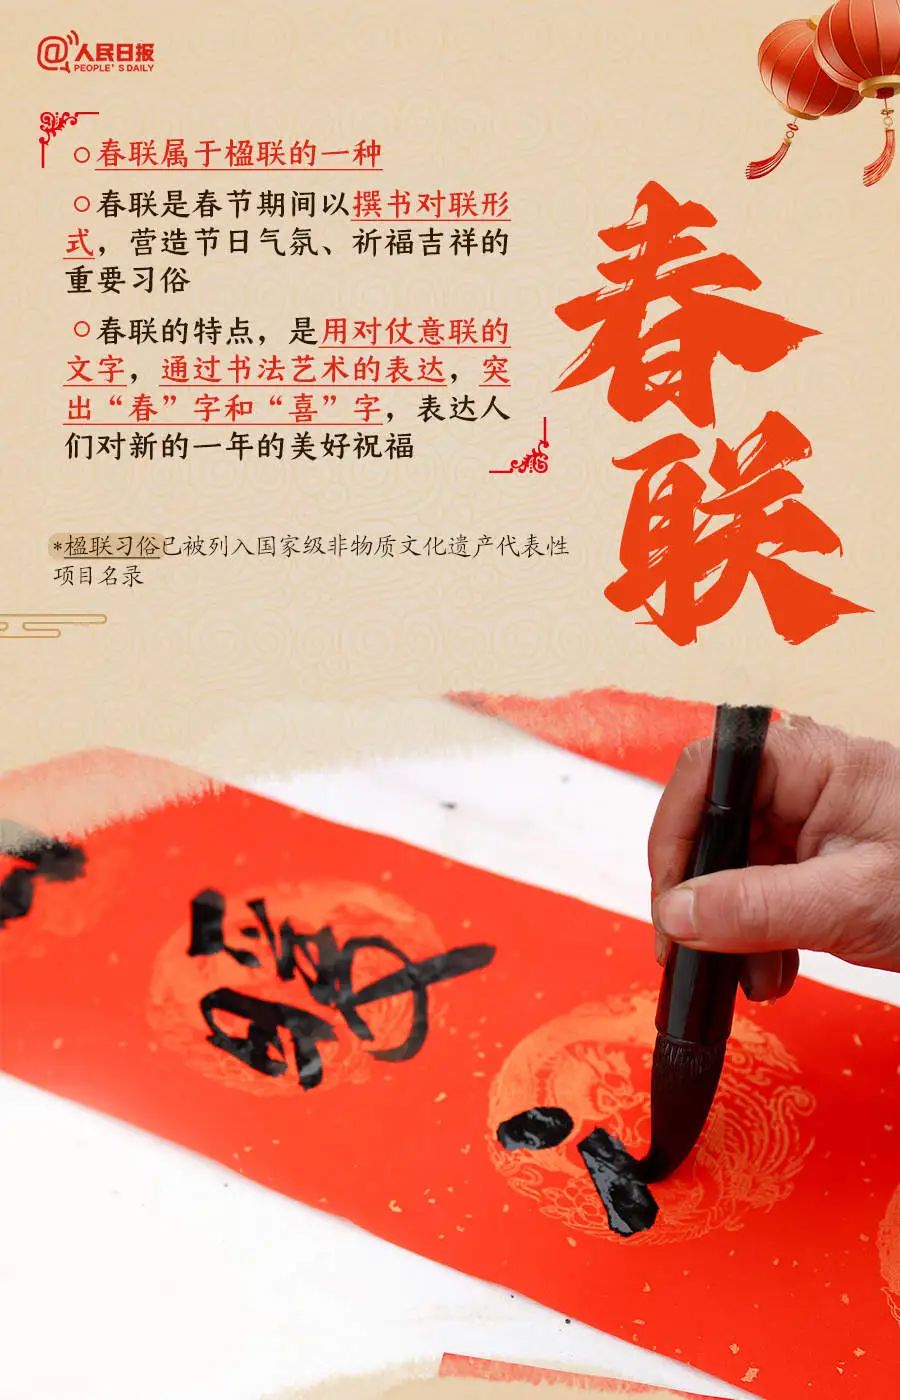 @人民日报
PEOPLE'S DAILY
○春联属于楹联的一种
○春联是春节期间以撰书对联形
式，营造节日气氛、祈福吉祥的
重要习俗
○春联的特点，是用对仗意联的
文字，通过书法艺术的表达，突
出“春”字和“喜”字，表达人
们对新的一年的美好祝福
春联
*楹联习俗已被列入国家级非物质文化遗产代表性
项目名录